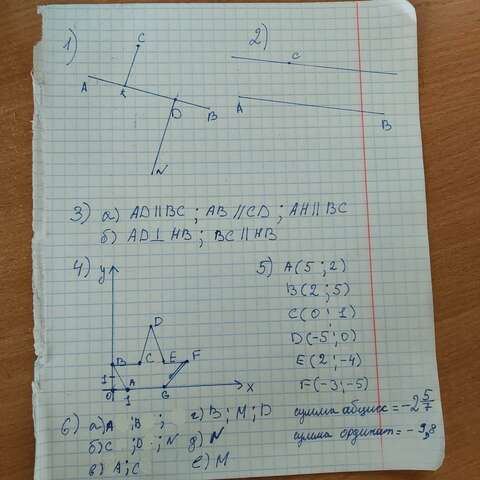 1)
C
A
K
D
B
N
2)
C
A
B
3) а) AD || BC ; AB // CD ; AH || BC
б) AD ⊥ HB ; BC || HB
4) y
D
B C E F
1 A
0 1 G x
5) A(5 ; 2)
B(2 ; 5)
C(0 ; 1)
D(-5 ; 0)
E(2 ; -4)
F(-3 ; -5)
сумма абсцисс = -2 5/7
сумма ординат = -9,8
6) а) A ; B ;
б) C ; D ; N
в) A ; C
г) B ; M ; D
д) N
е) M